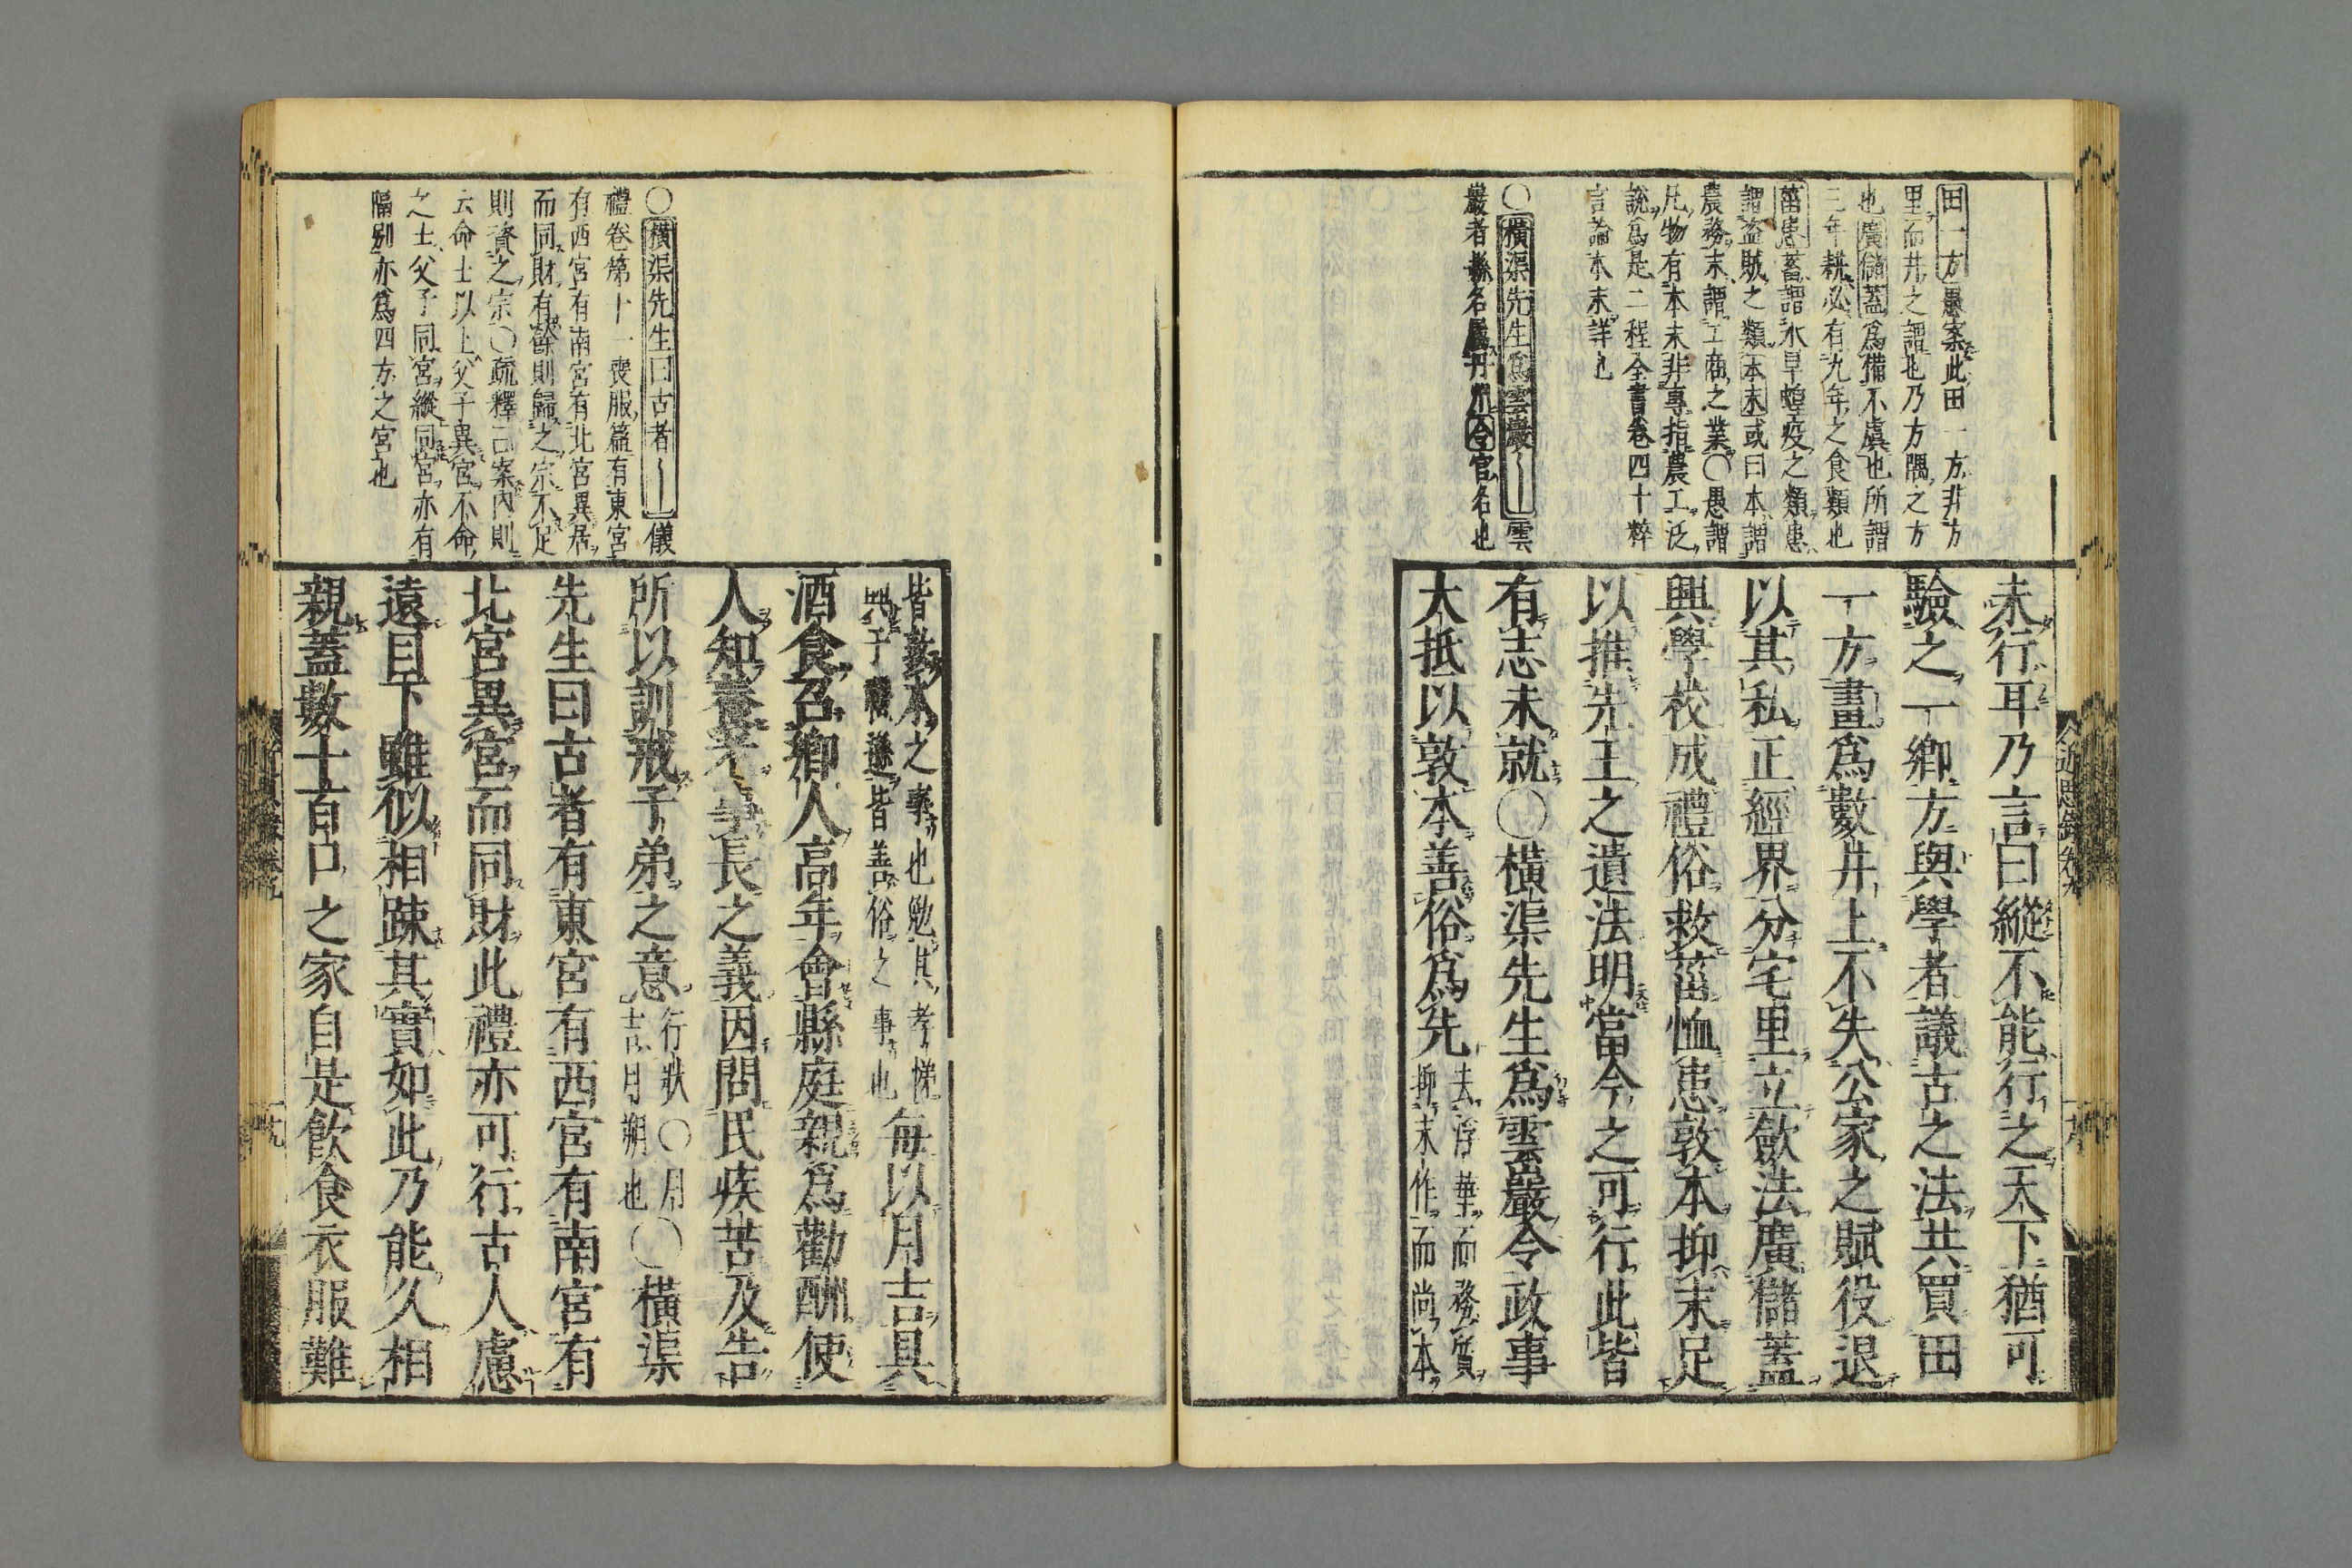 田一方愚案此田一方非方
里而井之謂也乃方隅之方
也廣儲蓋爲備不虞也所謂
三年耕必有九年之食類也
菑患蓄謂水旱蝗疫之類患
謂盗賊之類本末或曰本謂
農務末謂工商之業〇愚謂
凡物有本末非專指農工泛
説爲是二程全書卷四十粹
言論本末詳也
〇橫渠先生爲雲巖〜雲
巖者縣名屬丹州令官名也
未行耳乃言曰縱不能行之天下猶可
驗之一鄉方與學者議古之法共買田
一方畫爲數井上不失公家之賦役退
以其私正經界分宅里立歛法廣儲蓋
興學校成禮俗救菑恤患敦本抑末足
以推先王之遺法明當今之可行此皆
有志未就〇橫渠先生爲雲巖令政事
大抵以敦本善俗爲先去浮華而務質
抑末作而尚本
近思錄卷九
〇橫渠先生曰古者〜儀
禮卷第十一喪服篇有東宮
有西宮有南宮有北宮異居
而同財有餘則歸之宗不足
則資之宗〇疏釋曰案內則
云命士以上父子異宮不命
之士父子同宮縱同宮亦有
隔别亦爲四方之宮也
皆敦本之事也勉其孝悌
興于禮遜皆善俗之事也每以月吉具
酒食召鄉人高年會縣庭親爲勸酬使
人知養老事長之義因問民疾苦及告
所以訓戒子弟之意行狀〇月
吉月朔也〇橫渠
先生曰古者有東宮有西宮有南宮有
北宮異宮而同財此禮亦可行古人慮
遠目下雖似相疎其實如此乃能久相
親蓋數十百口之家自是飮食衣服難